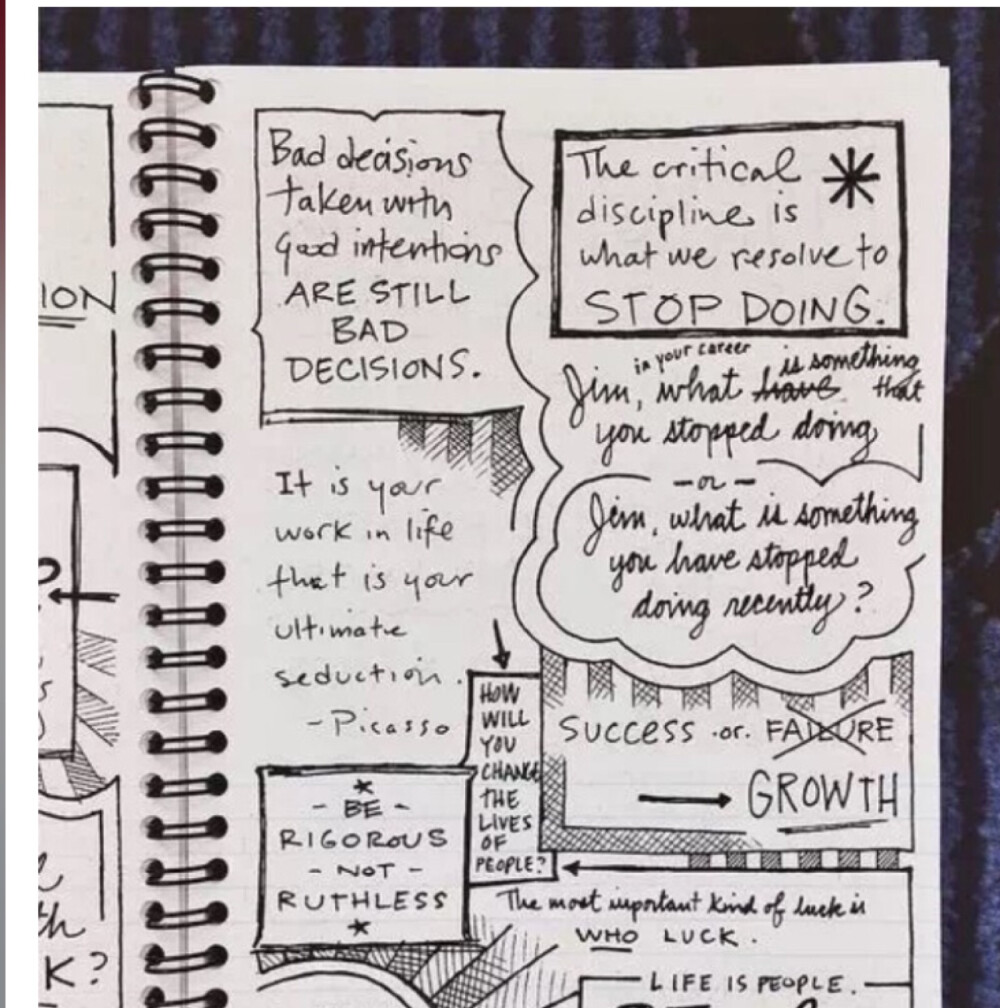 ION
K?
Bad decisions
taken with
good intentions
ARE STILL
BAD
DECISIONS.
The critical
discipline is
what we resolve to
STOP DOING.
in your career is something
Jim, what have that
you stopped doing
-or-
Jim, what is something
you have stopped
doing recently?
It is your
work in life
that is your
ultimate
seduction.
-Picasso
HOW
WILL
YOU
CHANGE
THE
LIVES
OF
PEOPLE?
SUCCESS .or. FAILURE
GROWTH
- BE -
RIGOROUS
- NOT -
RUTHLESS
The most important kind of luck is
WHO LUCK.
LIFE IS PEOPLE.